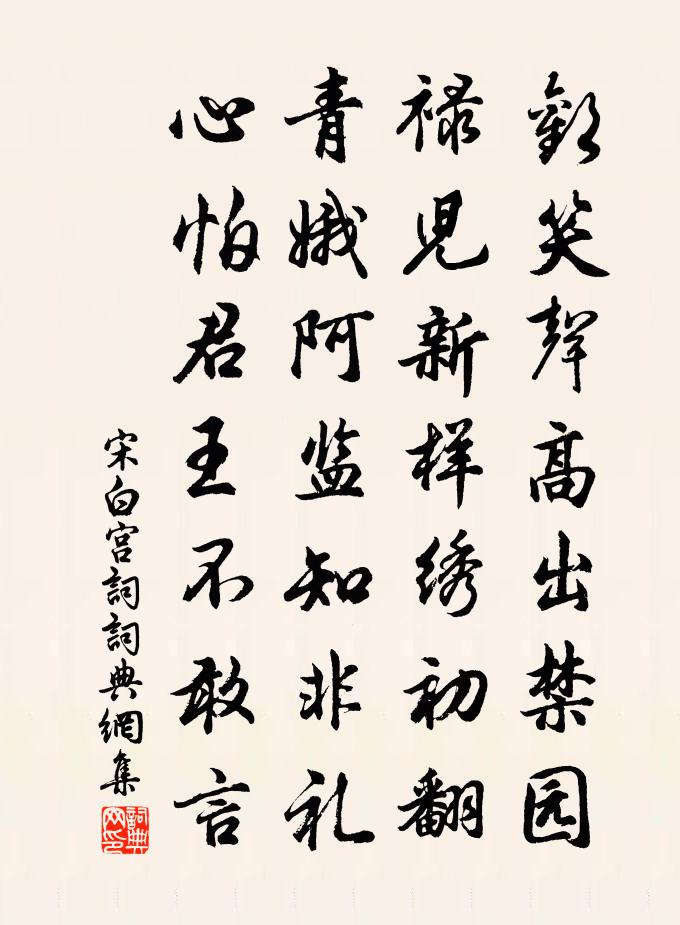 歡笑聲高出禁园
禄児新样绣初翻
青娥阿监知非礼
心怕君王不敢言
宋白宫詞詞典網集
詞典
网印